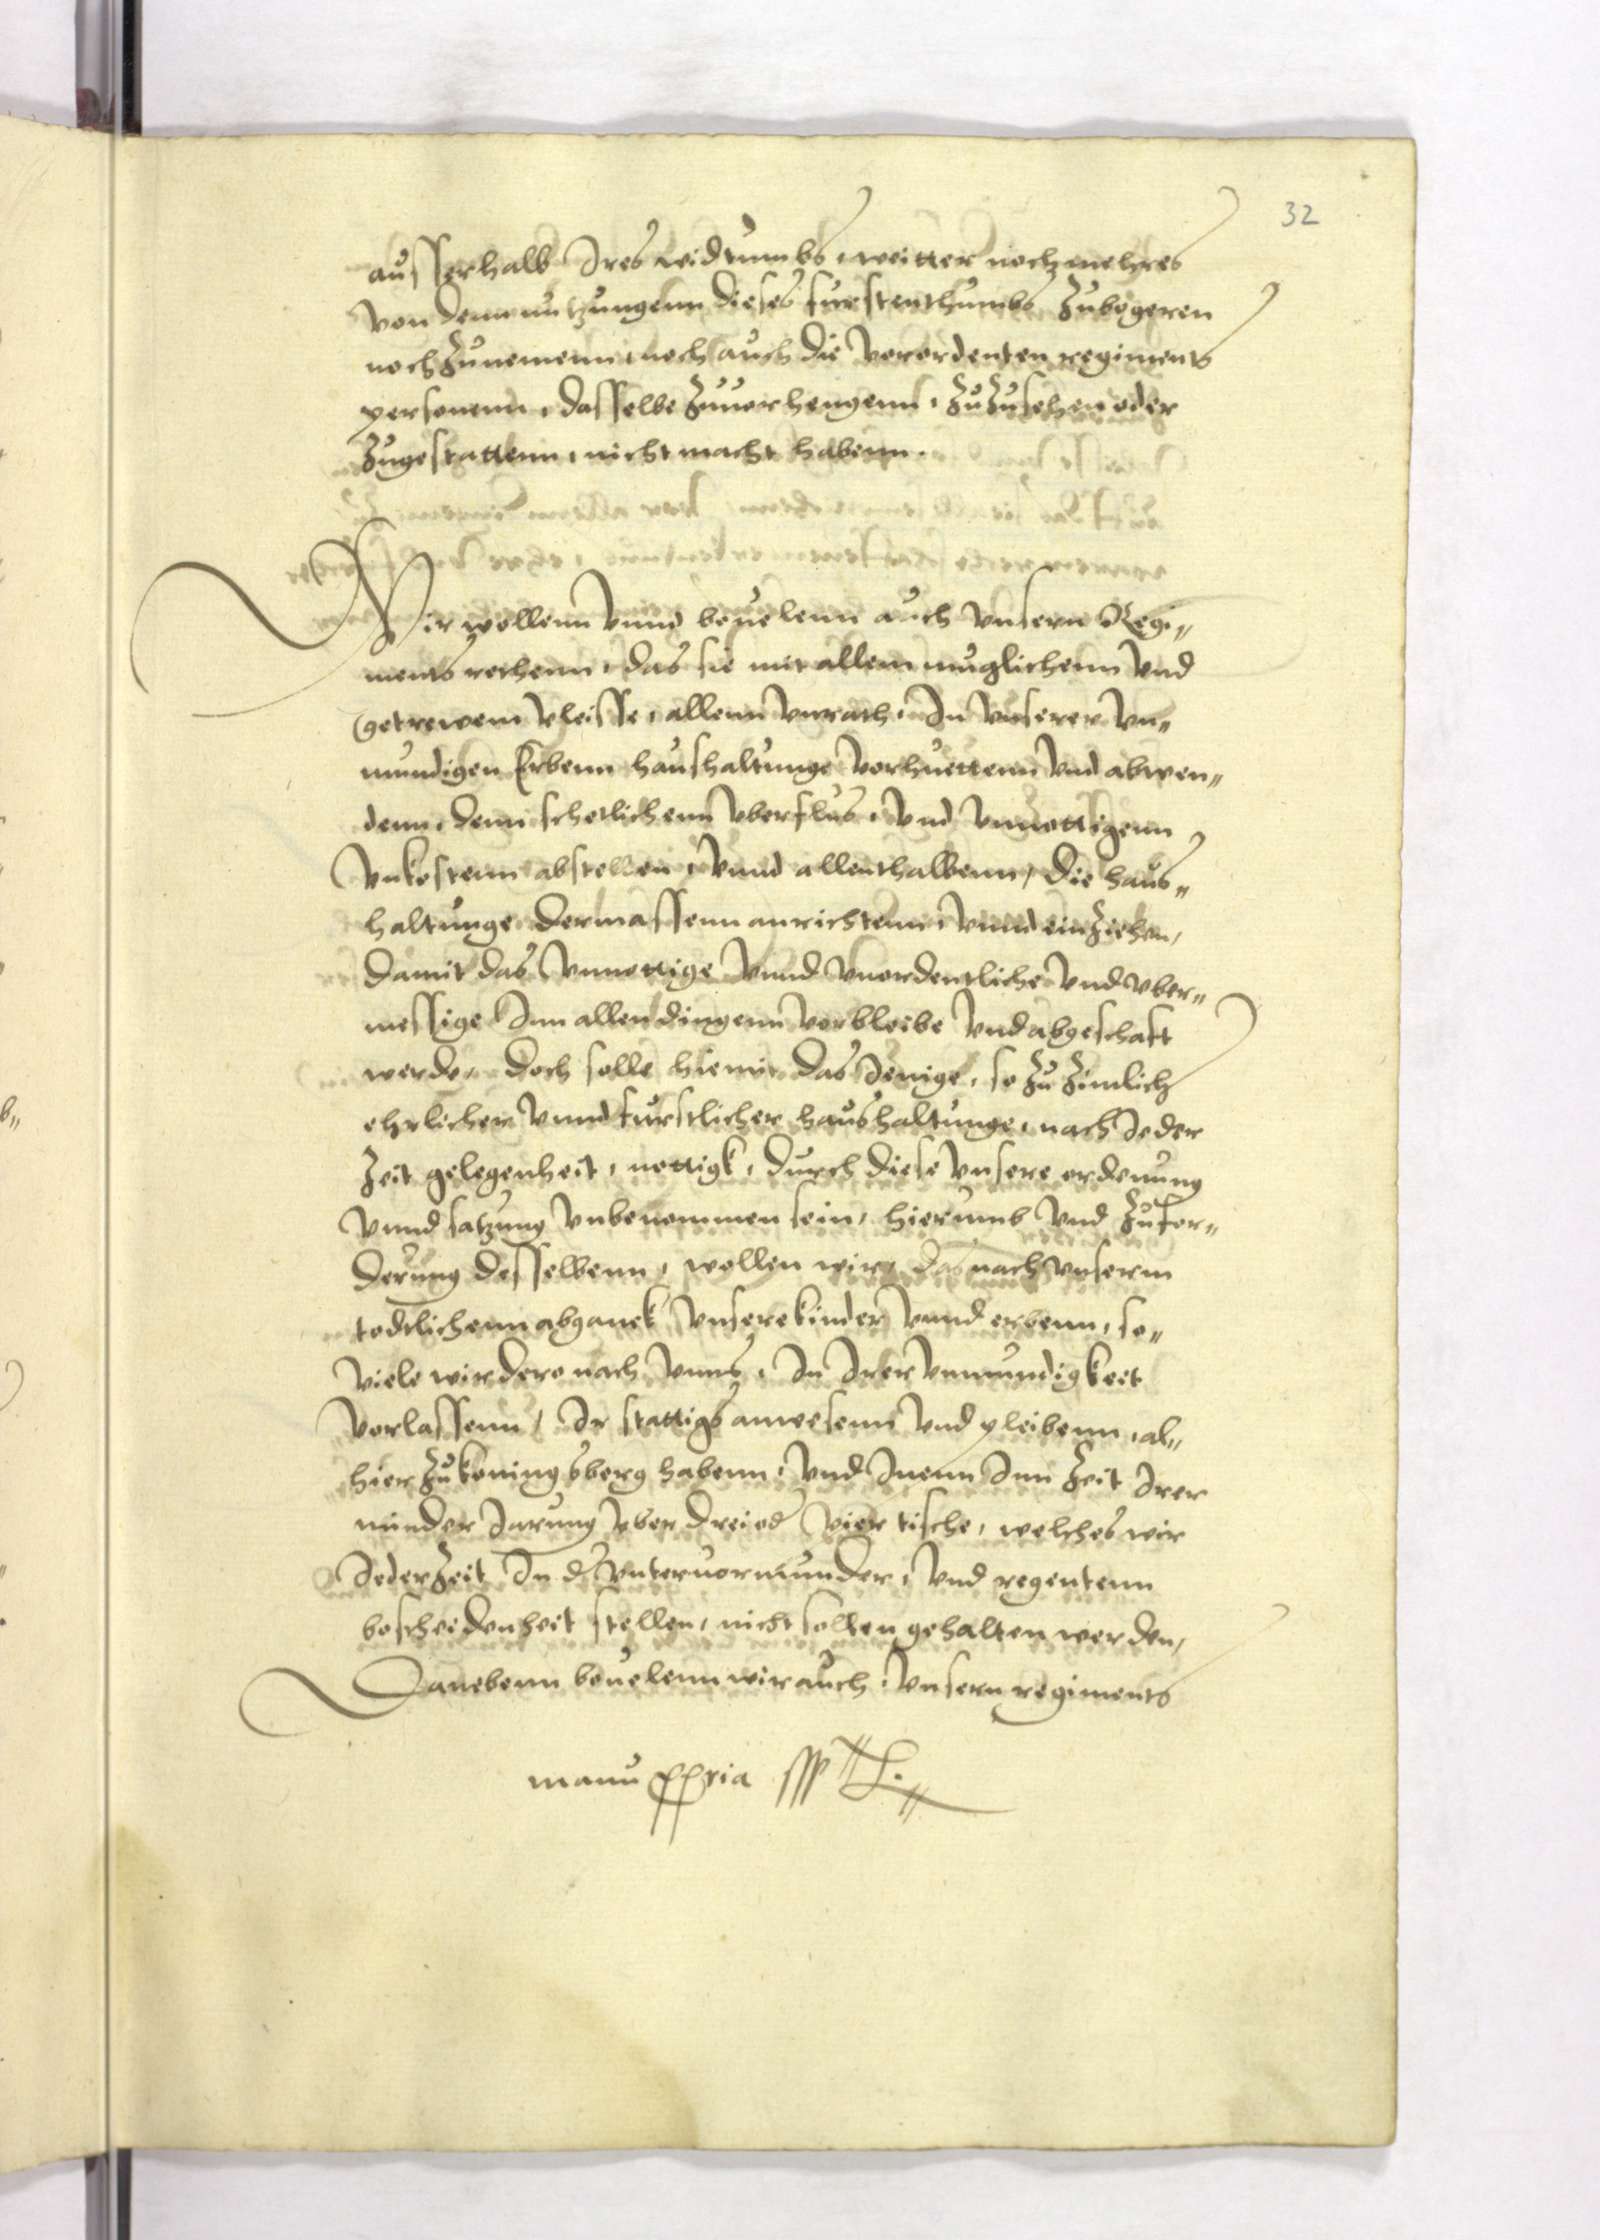 32
ausserhalb Ires widtumbs, weitter noch mehres
von denn nutzungenn dieses furstenthumbs zubegeren
noch zunemenn, noch auch die verordenten regiments
personenn, dasselbe zuuorhengenn, zuzusehen oder
zugestattenn, nicht macht habenn.
Wir wollenn vnnd beuelenn auch vnsern Regi„
ments rethenn, das sie mit allem muglichenn vnd
getrewem vleisse, allenn vnrath, In vnserer vn„
mundigen Erbenn haushaltunge vorhuettenn vnd abwen„
denn, denn schetlichenn vberflus, vnd vnnottigenn
vnkostenn abstellen, vnnd allenthalbenn, die haus„
haltunge dermassenn anrichtenn, vnnd einziehen,
damit das vnnottige vnnd vnordentliche vnd vber„
messige Inn allen dingenn vorbleibe vnd abgeschaft
werde, doch solle hiemit das Jenige, so zu zimlich
ehrlicher vnnd furstlicher haushaltunge, nach Jeder
zeit gelegenheit, nottigk, durch diese vnsere ordenung
vnnd satzung vnbenommen sein, hierumb vnd zu for„
derung desselbenn, wollen wir, das nach vnserm
todtlichenn abganck vnsere kinder vnnd erbenn, so„
viele wir dero nach vnns, In Irer vnmundigkeit
vorlassenn, Ir stattigs anwesenn vnd pleibenn, al„
hier zu koningsberg habenn, vnd Inenn Inn zeit Irer
minder Jarung vber drei od vier tische, welches wir
Jederzeit In d vnteruormunder, vnd regentenn
bescheidenheit stellen, nicht sollen gehalten werden,
Danebenn beuelenn wir auch, vnsern regiments
manu ppria